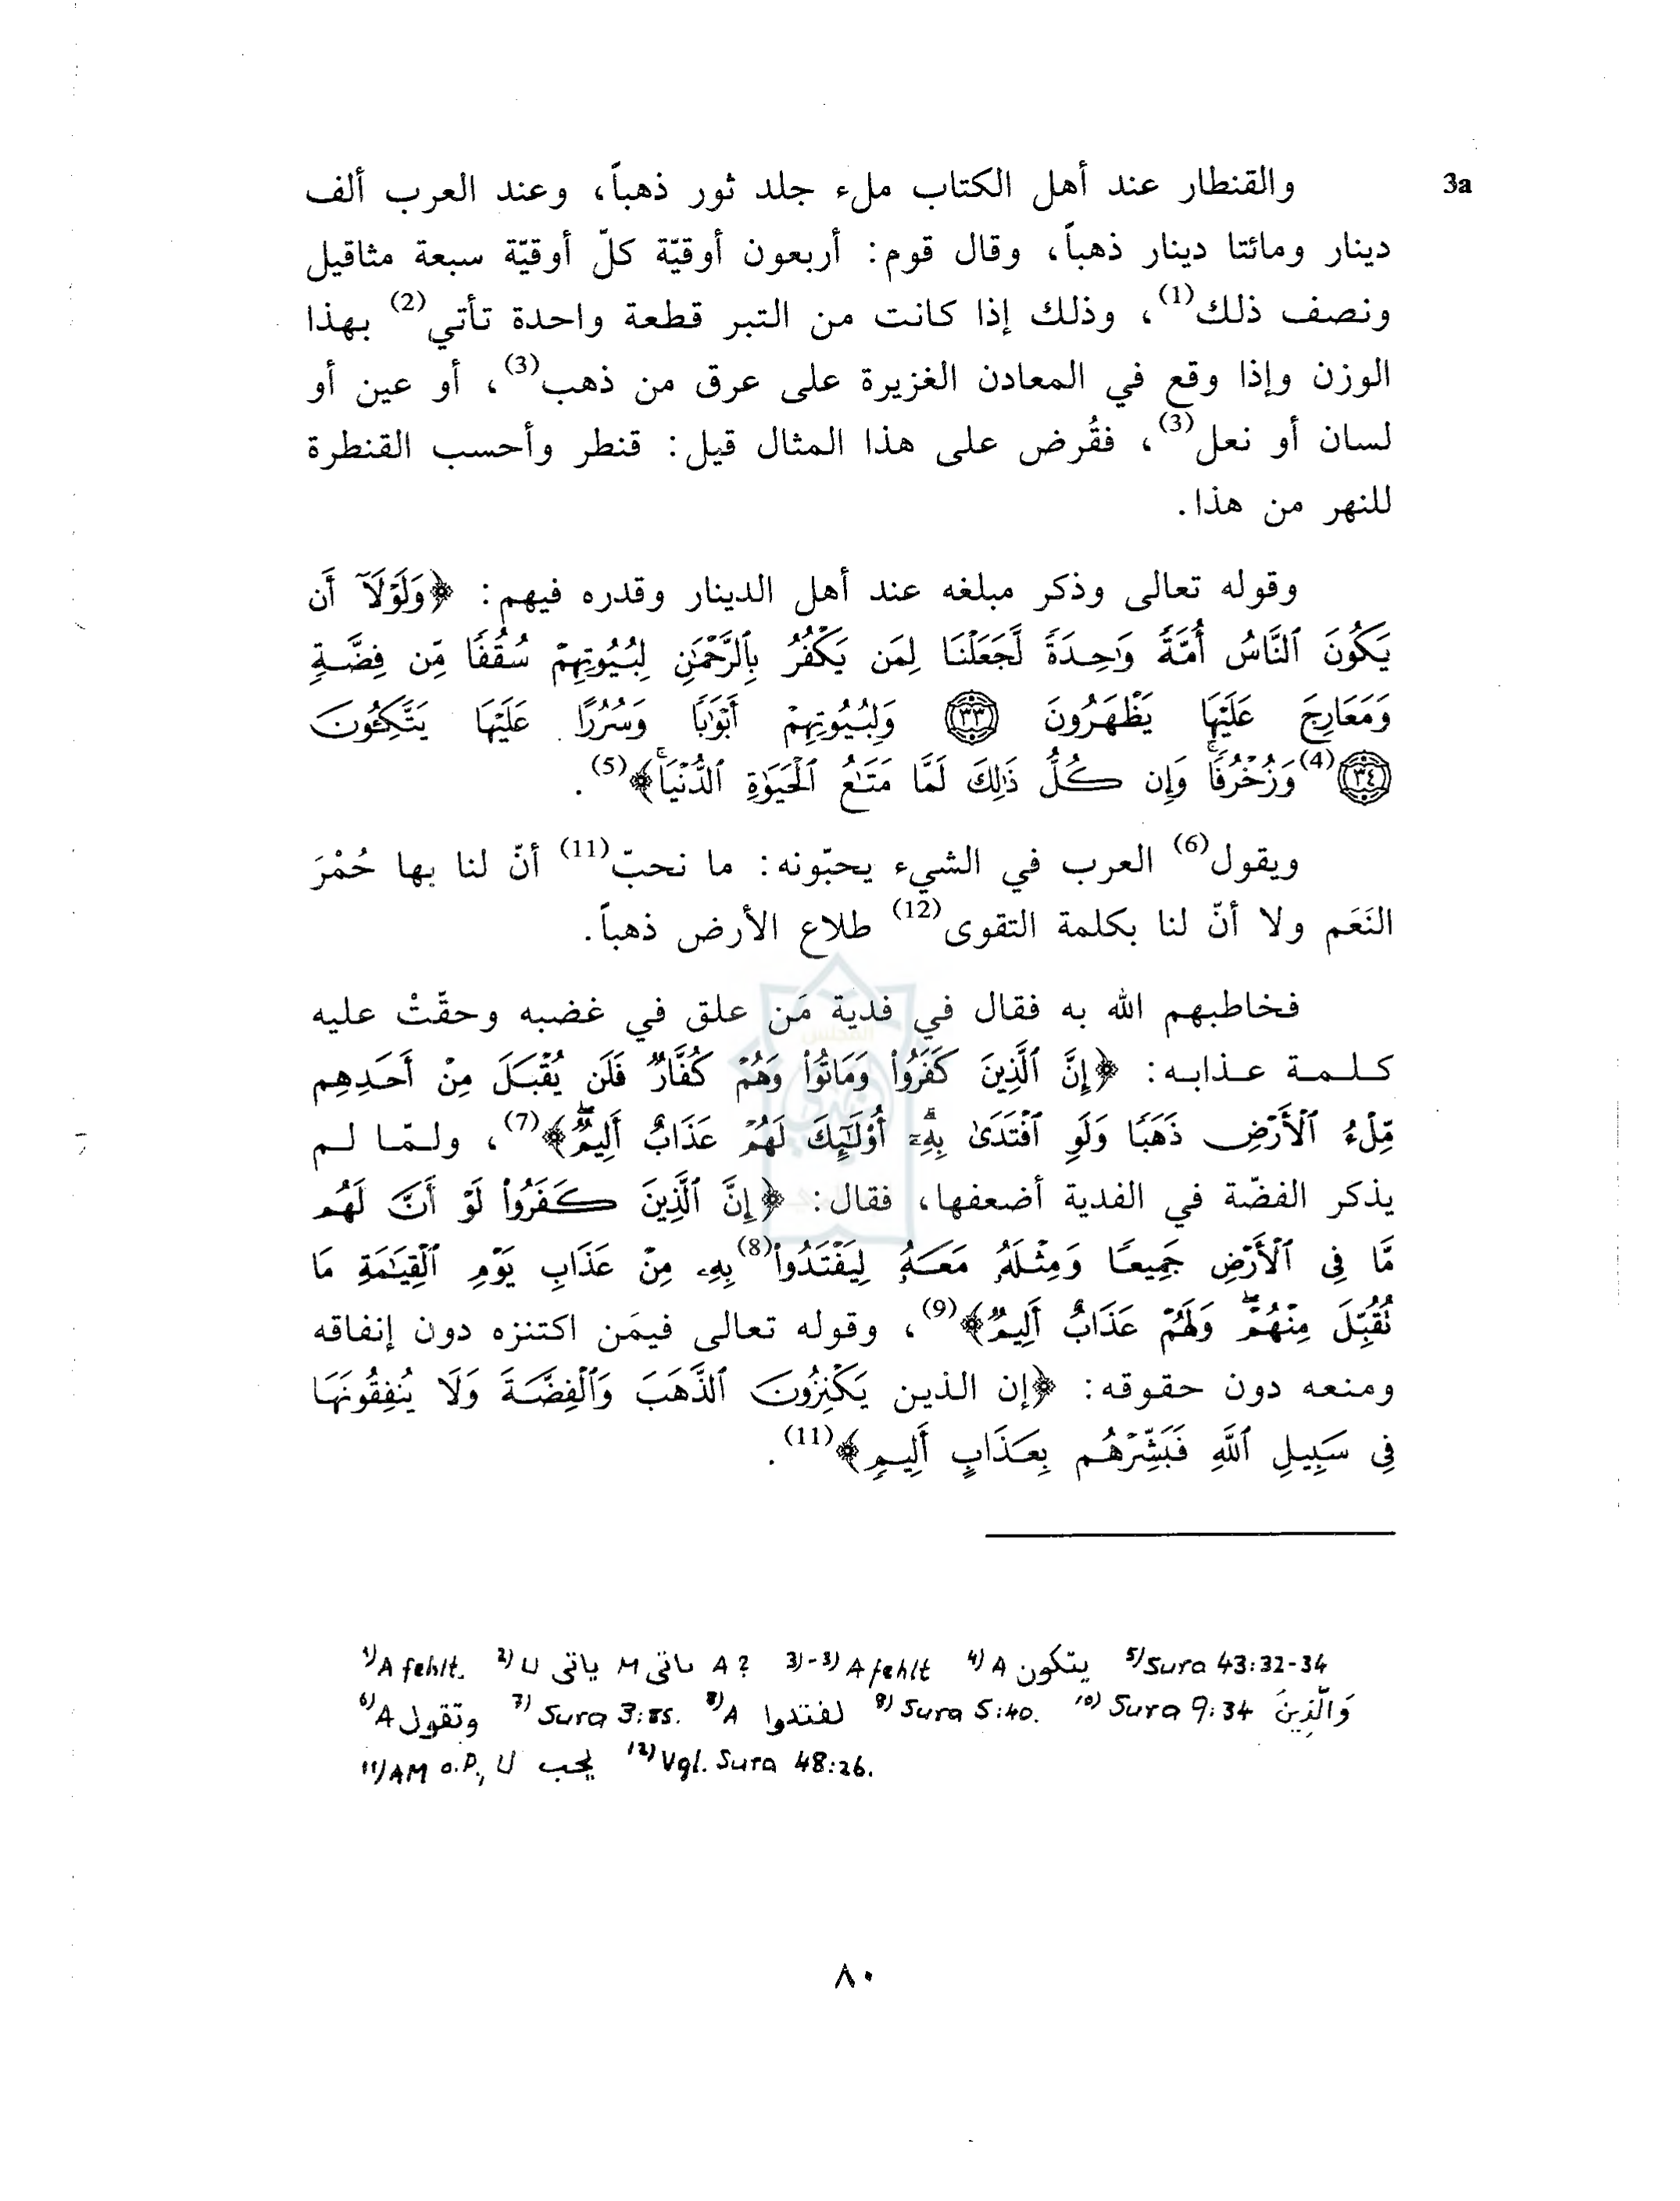 3a
والقنطار عند أهل الكتاب ملء جلد ثور ذهباً، وعند العرب ألف
دينار ومائتا دينار ذهباً، وقال قوم: أربعون أوقيّة كلّ أوقيّة سبعة مثاقيل
ونصف ذلك(1)، وذلك إذا كانت من التبر قطعة واحدة تأتي(2) بهذا
الوزن وإذا وقع في المعادن الغزيرة على عرق من ذهب(3)، أو عين أو
لسان أو نعل(3)، فقُرض على هذا المثال قيل: قنطر وأحسب القنطرة
للنهر من هذا.
وقوله تعالى وذكر مبلغه عند أهل الدينار وقدره فيهم: ﴿وَلَوْلَآ أَن
يَكُونَ ٱلنَّاسُ أُمَّةً وَٰحِدَةً لَّجَعَلْنَا لِمَن يَكْفُرُ بِٱلرَّحْمَٰنِ لِبُيُوتِهِمْ سُقُفًا مِّن فِضَّةٍ
وَمَعَارِجَ عَلَيْهَا يَظْهَرُونَ ٣٣ وَلِبُيُوتِهِمْ أَبْوَٰبًا وَسُرُرًا عَلَيْهَا يَتَّكِـُٔونَ
٣٤(4) وَزُخْرُفًا ۚ وَإِن كُلُّ ذَٰلِكَ لَمَّا مَتَٰعُ ٱلْحَيَوٰةِ ٱلدُّنْيَا ۚ﴾(5).
ويقول(6) العرب في الشيء يحبّونه: ما نحبّ(11) أنّ لنا بها حُمْرَ
النَعَم ولا أنّ لنا بكلمة التقوى(12) طلاع الأرض ذهباً.
فخاطبهم الله به فقال في فدية مَن علق في غضبه وحقّتْ عليه
كلمة عذابه: ﴿إِنَّ ٱلَّذِينَ كَفَرُوا۟ وَمَاتُوا۟ وَهُمْ كُفَّارٌ فَلَن يُقْبَلَ مِنْ أَحَدِهِم
مِّلْءُ ٱلْأَرْضِ ذَهَبًا وَلَوِ ٱفْتَدَىٰ بِهِۦٓ ۗ أُو۟لَٰٓئِكَ لَهُمْ عَذَابٌ أَلِيمٌ ۖ﴾(7)، ولمّا لم
يذكر الفضّة في الفدية أضعفها، فقال: ﴿إِنَّ ٱلَّذِينَ كَفَرُوا۟ لَوْ أَنَّ لَهُم
مَّا فِى ٱلْأَرْضِ جَمِيعًا وَمِثْلَهُۥ مَعَهُۥ لِيَفْتَدُوا۟(8) بِهِۦ مِنْ عَذَابِ يَوْمِ ٱلْقِيَٰمَةِ مَا
تُقُبِّلَ مِنْهُمْ ۖ وَلَهُمْ عَذَابٌ أَلِيمٌ﴾(9)، وقوله تعالى فيمَن اكتنزه دون إنفاقه
ومنعه دون حقوقه: ﴿إن الذين يَكْنِزُونَ ٱلذَّهَبَ وَٱلْفِضَّةَ وَلَا يُنفِقُونَهَا
فِى سَبِيلِ ٱللَّهِ فَبَشِّرْهُم بِعَذَابٍ أَلِيمٍ﴾(11).
1) A fehlt. 2) U ياتى M ىاتى A ? 3)-3) A fehlt 4) A يتكون 5) Sura 43:32-34
6) A وتقول 7) Sura 3:85. 8) A لفتدوا 9) Sura 5:40. 10) Sura 9:34 وَالَّذِينَ
11) AM o.P., U يحب 12) Vgl. Sura 48:26.
٨٠